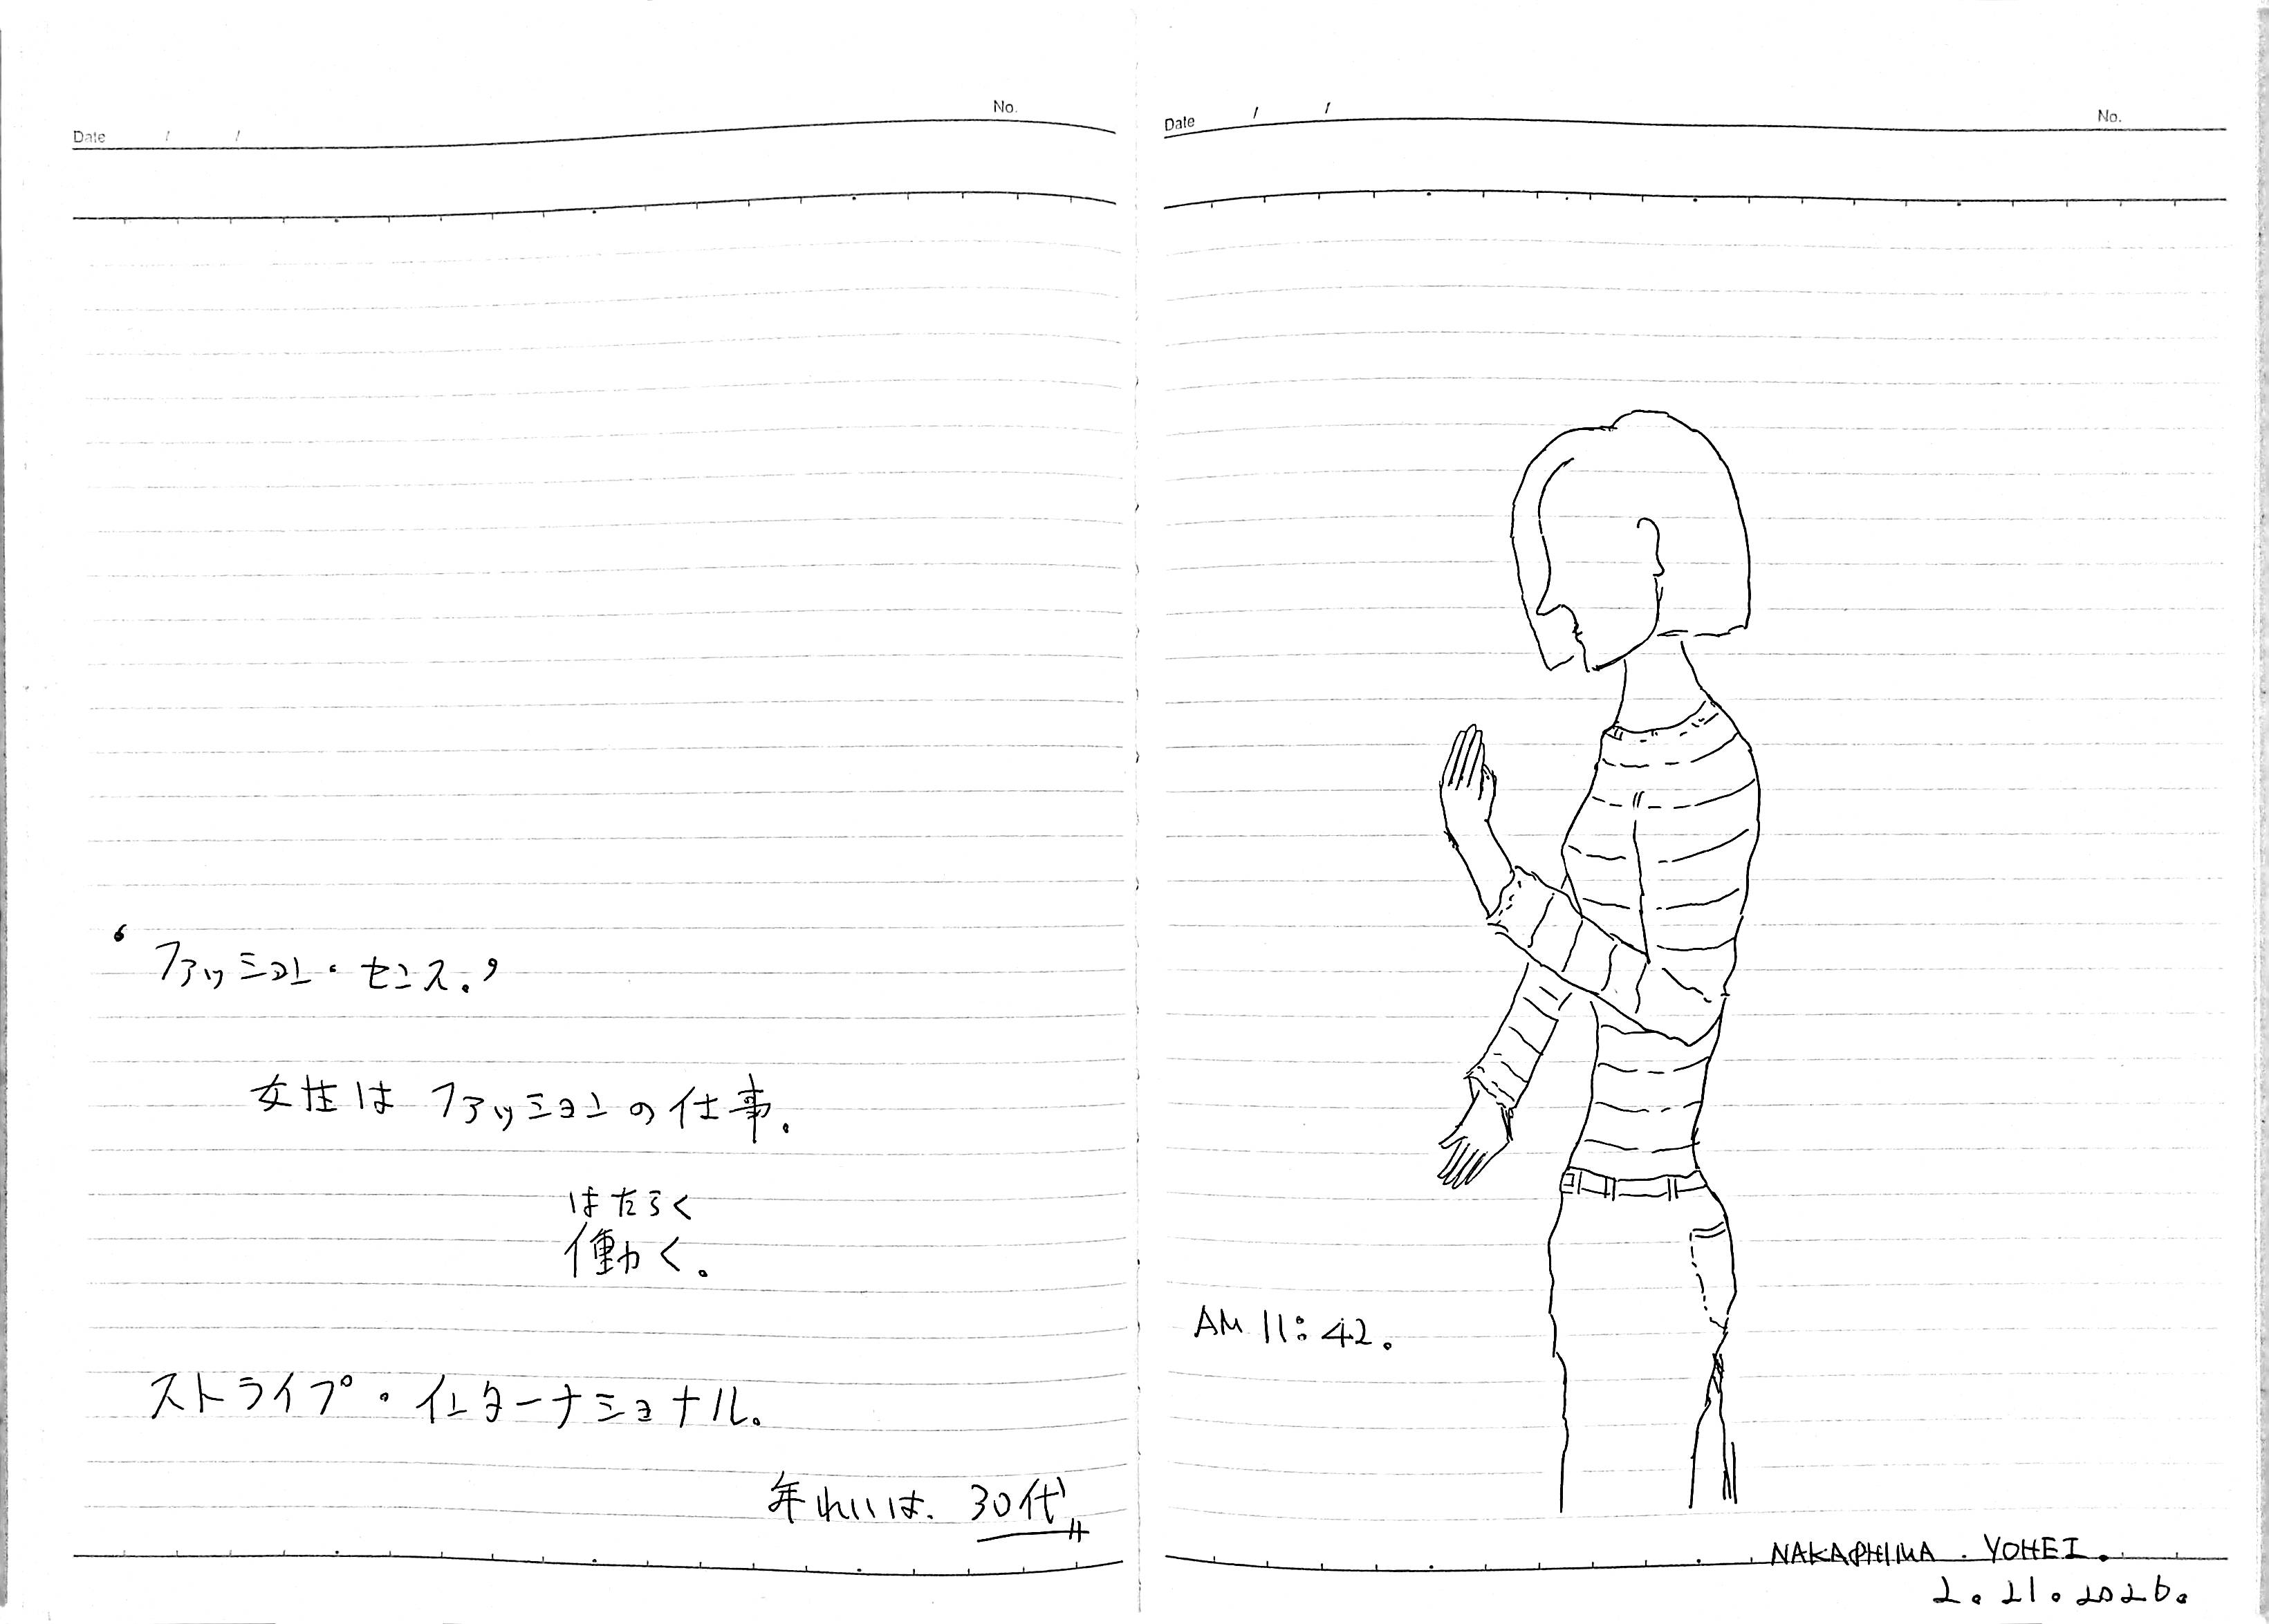 Date / /
No.
‘ファッション・センス.’
女性はファッションの仕事.
はたらく
働く。
ストライプ・インターナショナル.
年れいは. 30代
Date / /
No.
AM 11:42.
NAKASHIMA. YOHEI.
2. 21. 2026.